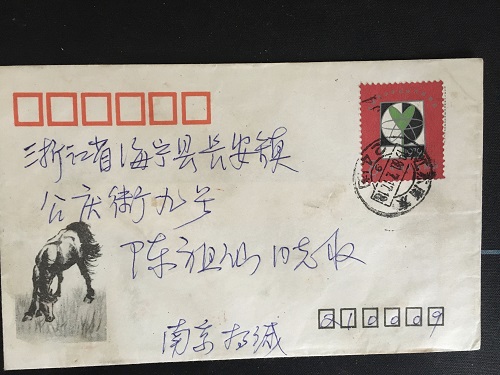 浙江省海宁县长安镇
公庆街九号
陈祖仙同志收
南京
210009